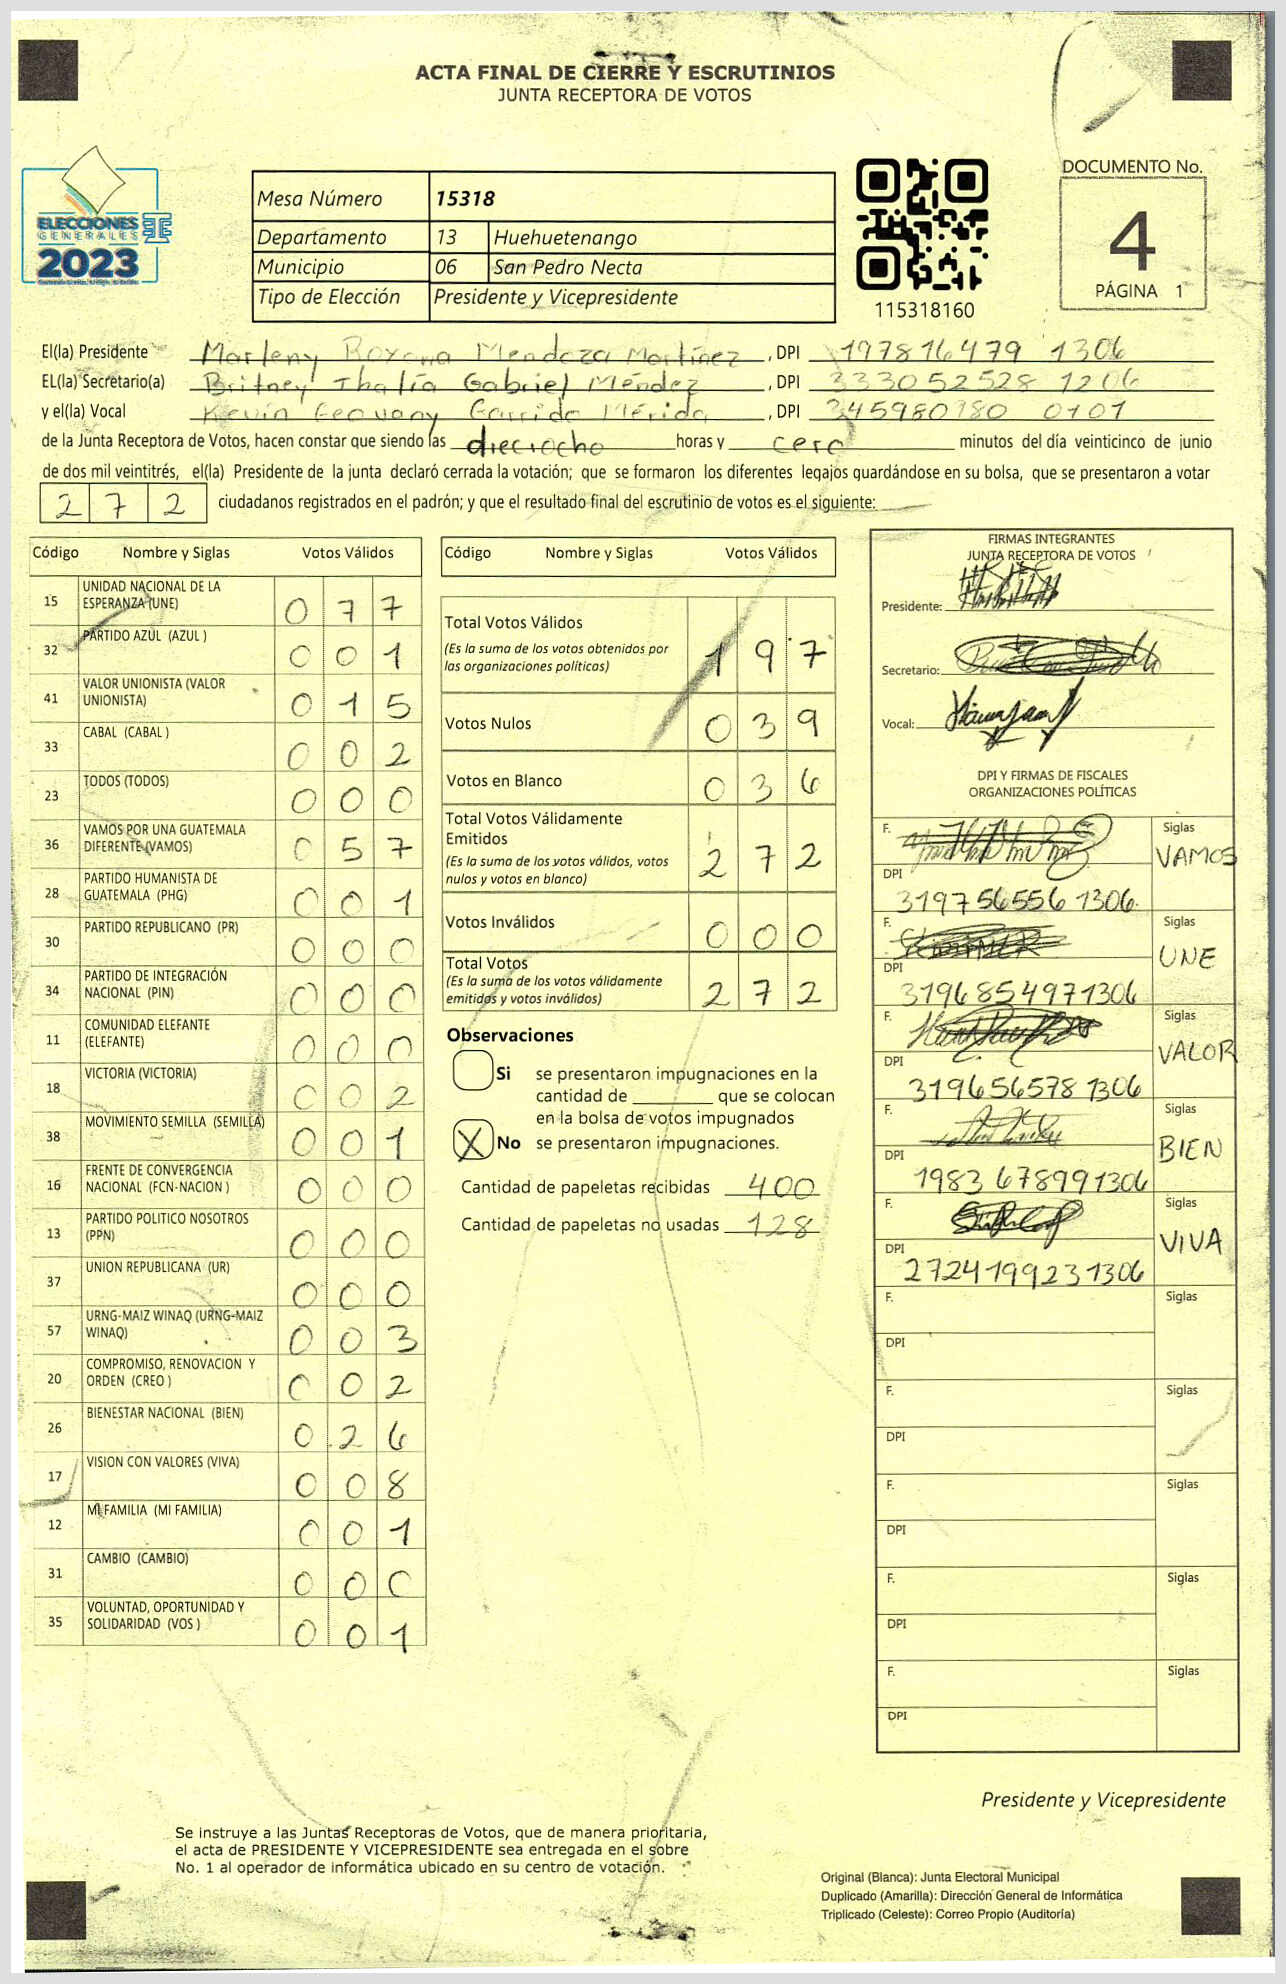 ACTA FINAL DE CIERRE Y ESCRUTINIOS
JUNTA RECEPTORA DE VOTOS
ELECCIONES
GENERALES
2023
Mesa Número 15318
Departamento 13 Huehuetenango
Municipio 06 San Pedro Necta
Tipo de Elección Presidente y Vicepresidente
115318160
DOCUMENTO No.
4
PÁGINA 1
El(la) Presidente Marleny Roxana Mendoza Martínez, DPI 197816479 1306
EL(la) Secretario(a) Britney Thalía Gabriel Méndez, DPI 333052528 1206
y el(la) Vocal Kevin Geovany Garrido Mérida, DPI 345980980 0101
de la Junta Receptora de Votos, hacen constar que siendo las dieciocho horas y cero minutos del día veinticinco de junio
de dos mil veintitrés, el(la) Presidente de la junta declaró cerrada la votación; que se formaron los diferentes legajos guardándose en su bolsa, que se presentaron a votar
272 ciudadanos registrados en el padrón; y que el resultado final del escrutinio de votos es el siguiente:
Código Nombre y Siglas Votos Válidos
15 UNIDAD NACIONAL DE LA ESPERANZA (UNE) 077
32 PARTIDO AZUL (AZUL ) 001
41 VALOR UNIONISTA (VALOR UNIONISTA) 015
33 CABAL (CABAL ) 002
23 TODOS (TODOS) 000
36 VAMOS POR UNA GUATEMALA DIFERENTE (VAMOS) 057
28 PARTIDO HUMANISTA DE GUATEMALA (PHG) 001
30 PARTIDO REPUBLICANO (PR) 000
34 PARTIDO DE INTEGRACIÓN NACIONAL (PIN) 000
11 COMUNIDAD ELEFANTE (ELEFANTE) 000
18 VICTORIA (VICTORIA) 002
38 MOVIMIENTO SEMILLA (SEMILLA) 001
16 FRENTE DE CONVERGENCIA NACIONAL (FCN-NACION ) 000
13 PARTIDO POLITICO NOSOTROS (PPN) 000
37 UNION REPUBLICANA (UR) 000
57 URNG-MAIZ WINAQ (URNG-MAIZ WINAQ) 003
20 COMPROMISO, RENOVACION Y ORDEN (CREO ) 002
26 BIENESTAR NACIONAL (BIEN) 026
17 VISION CON VALORES (VIVA) 008
12 MI FAMILIA (MI FAMILIA) 001
31 CAMBIO (CAMBIO) 000
35 VOLUNTAD, OPORTUNIDAD Y SOLIDARIDAD (VOS ) 001
Código Nombre y Siglas Votos Válidos
Total Votos Válidos
(Es la suma de los votos obtenidos por
las organizaciones políticas) 197
Votos Nulos 039
Votos en Blanco 036
Total Votos Válidamente
Emitidos
(Es la suma de los votos válidos, votos
nulos y votos en blanco) 272
Votos Inválidos 000
Total Votos
(Es la suma de los votos válidamente
emitidos y votos inválidos) 272
Observaciones
Si se presentaron impugnaciones en la
cantidad de ________ que se colocan
en la bolsa de votos impugnados
X No se presentaron impugnaciones.
Cantidad de papeletas recibidas 400
Cantidad de papeletas no usadas 128
FIRMAS INTEGRANTES
JUNTA RECEPTORA DE VOTOS
Presidente:
Secretario:
Vocal:
DPI Y FIRMAS DE FISCALES
ORGANIZACIONES POLÍTICAS
F. Siglas VAMOS
DPI 319756556 1306
F. Siglas UNE
DPI 3196854971306
F. Siglas VALOR
DPI 319656578 1306
F. Siglas BIEN
DPI 1983 678991306
F. Siglas VIVA
DPI 2724199231306
F. Siglas
DPI
F. Siglas
DPI
F. Siglas
DPI
F. Siglas
DPI
F. Siglas
DPI
Presidente y Vicepresidente
Se instruye a las Juntas Receptoras de Votos, que de manera prioritaria,
el acta de PRESIDENTE Y VICEPRESIDENTE sea entregada en el sobre
No. 1 al operador de informática ubicado en su centro de votación.
Original (Blanca): Junta Electoral Municipal
Duplicado (Amarilla): Dirección General de Informática
Triplicado (Celeste): Correo Propio (Auditoría)